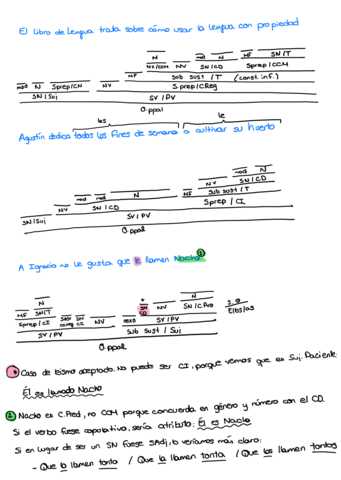 El libro de Lengua trata sobre cómo usar la lengua con propiedad
N
N mod N MF SN/T
NX/CCM NV SN/CD Sprep/CCM
mod N Sprep/CN NV MF Sub Sust /T (const. inf.)
SN/Suj S.prep/CReg
SV/PV
O.ppal
los le
Agustín dedica todos los fines de semana a cultivar su huerto
mod N
NV SN/CD
mod mod N MF Sub sust /T
NV SN/CD Sprep / CI
SN/Suj SV/PV
O.ppal
A Ignacio no le gusta que le llamen Nacho 2
N * N
MF SN/T SN CD NV SN/C.Pvo S.O
Sprep/CI NV nexo SV/PV Ellos/as
SV/PV Sub sust / Suj
O.ppal
* Caso de leísmo aceptado. No puede ser CI, porque vemos que es Suj. Paciente:
Él es llamado Nacho
2 Nacho es C.Pred, no CCM porque concuerda en género y número con el CD.
Si el verbo fuese copulativo, sería atributo: Él es Nacho
Si en lugar de ser un SN fuese SAdj, lo veríamos más claro:
- Que lo llamen tonto / Que la llamen tonta / Que los llamen tontos